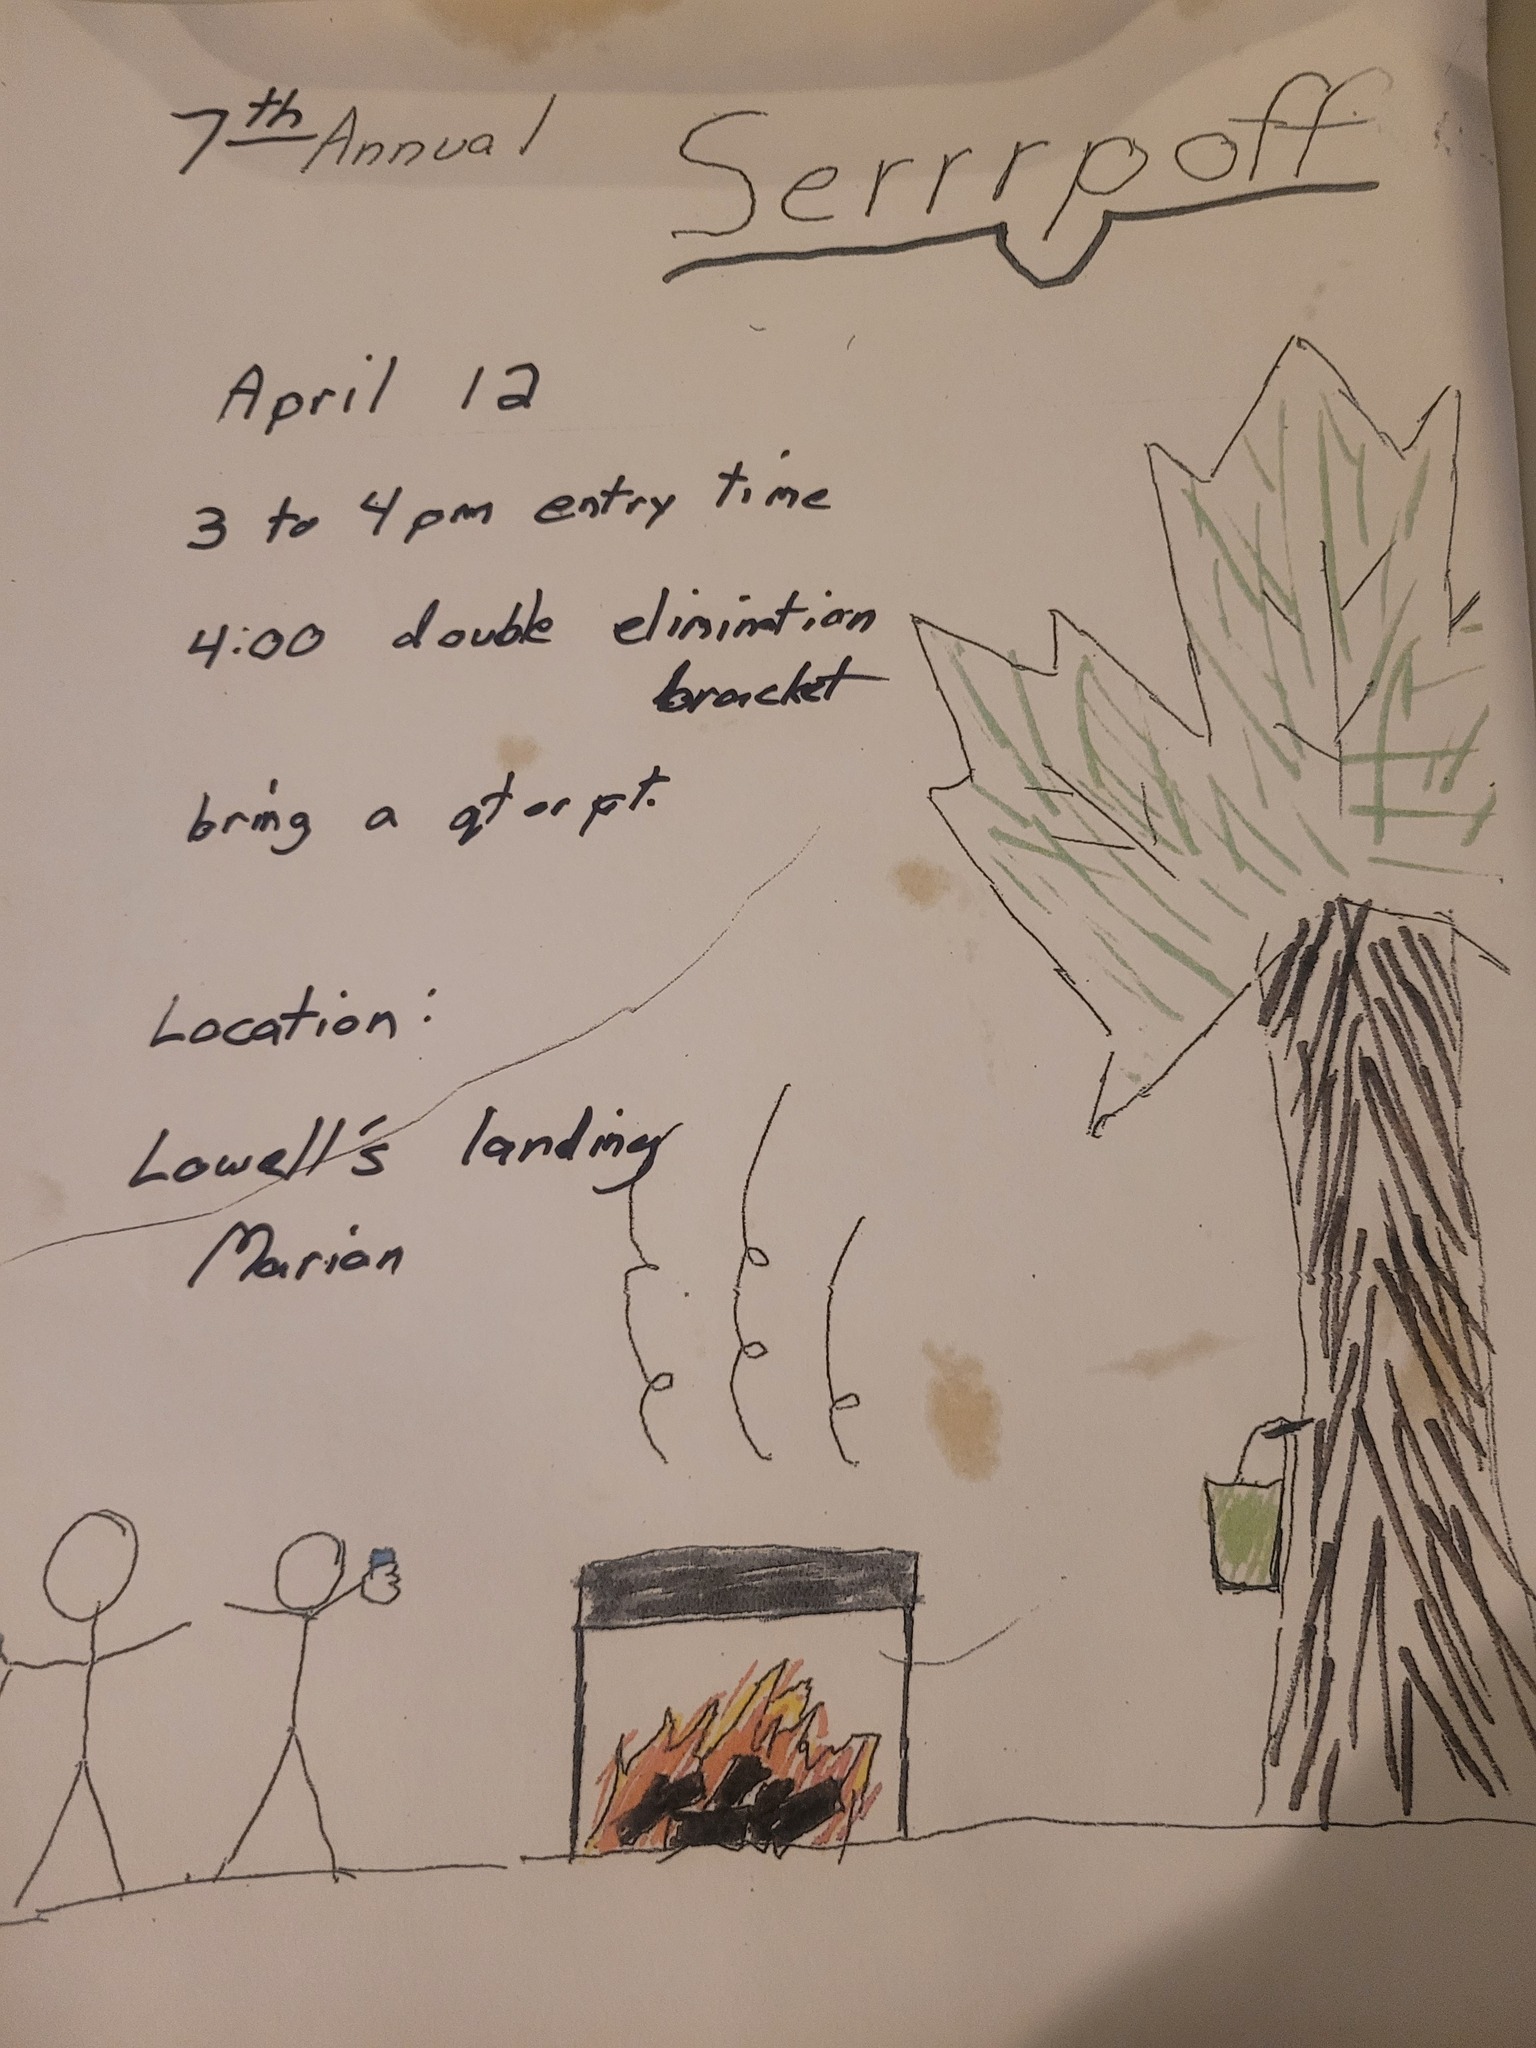 7th Annual Serrrpoff
April 12
3 to 4pm entry time
4:00 double elimination
bracket
bring a qt or pt.
Location:
Lowell's landing
Marion